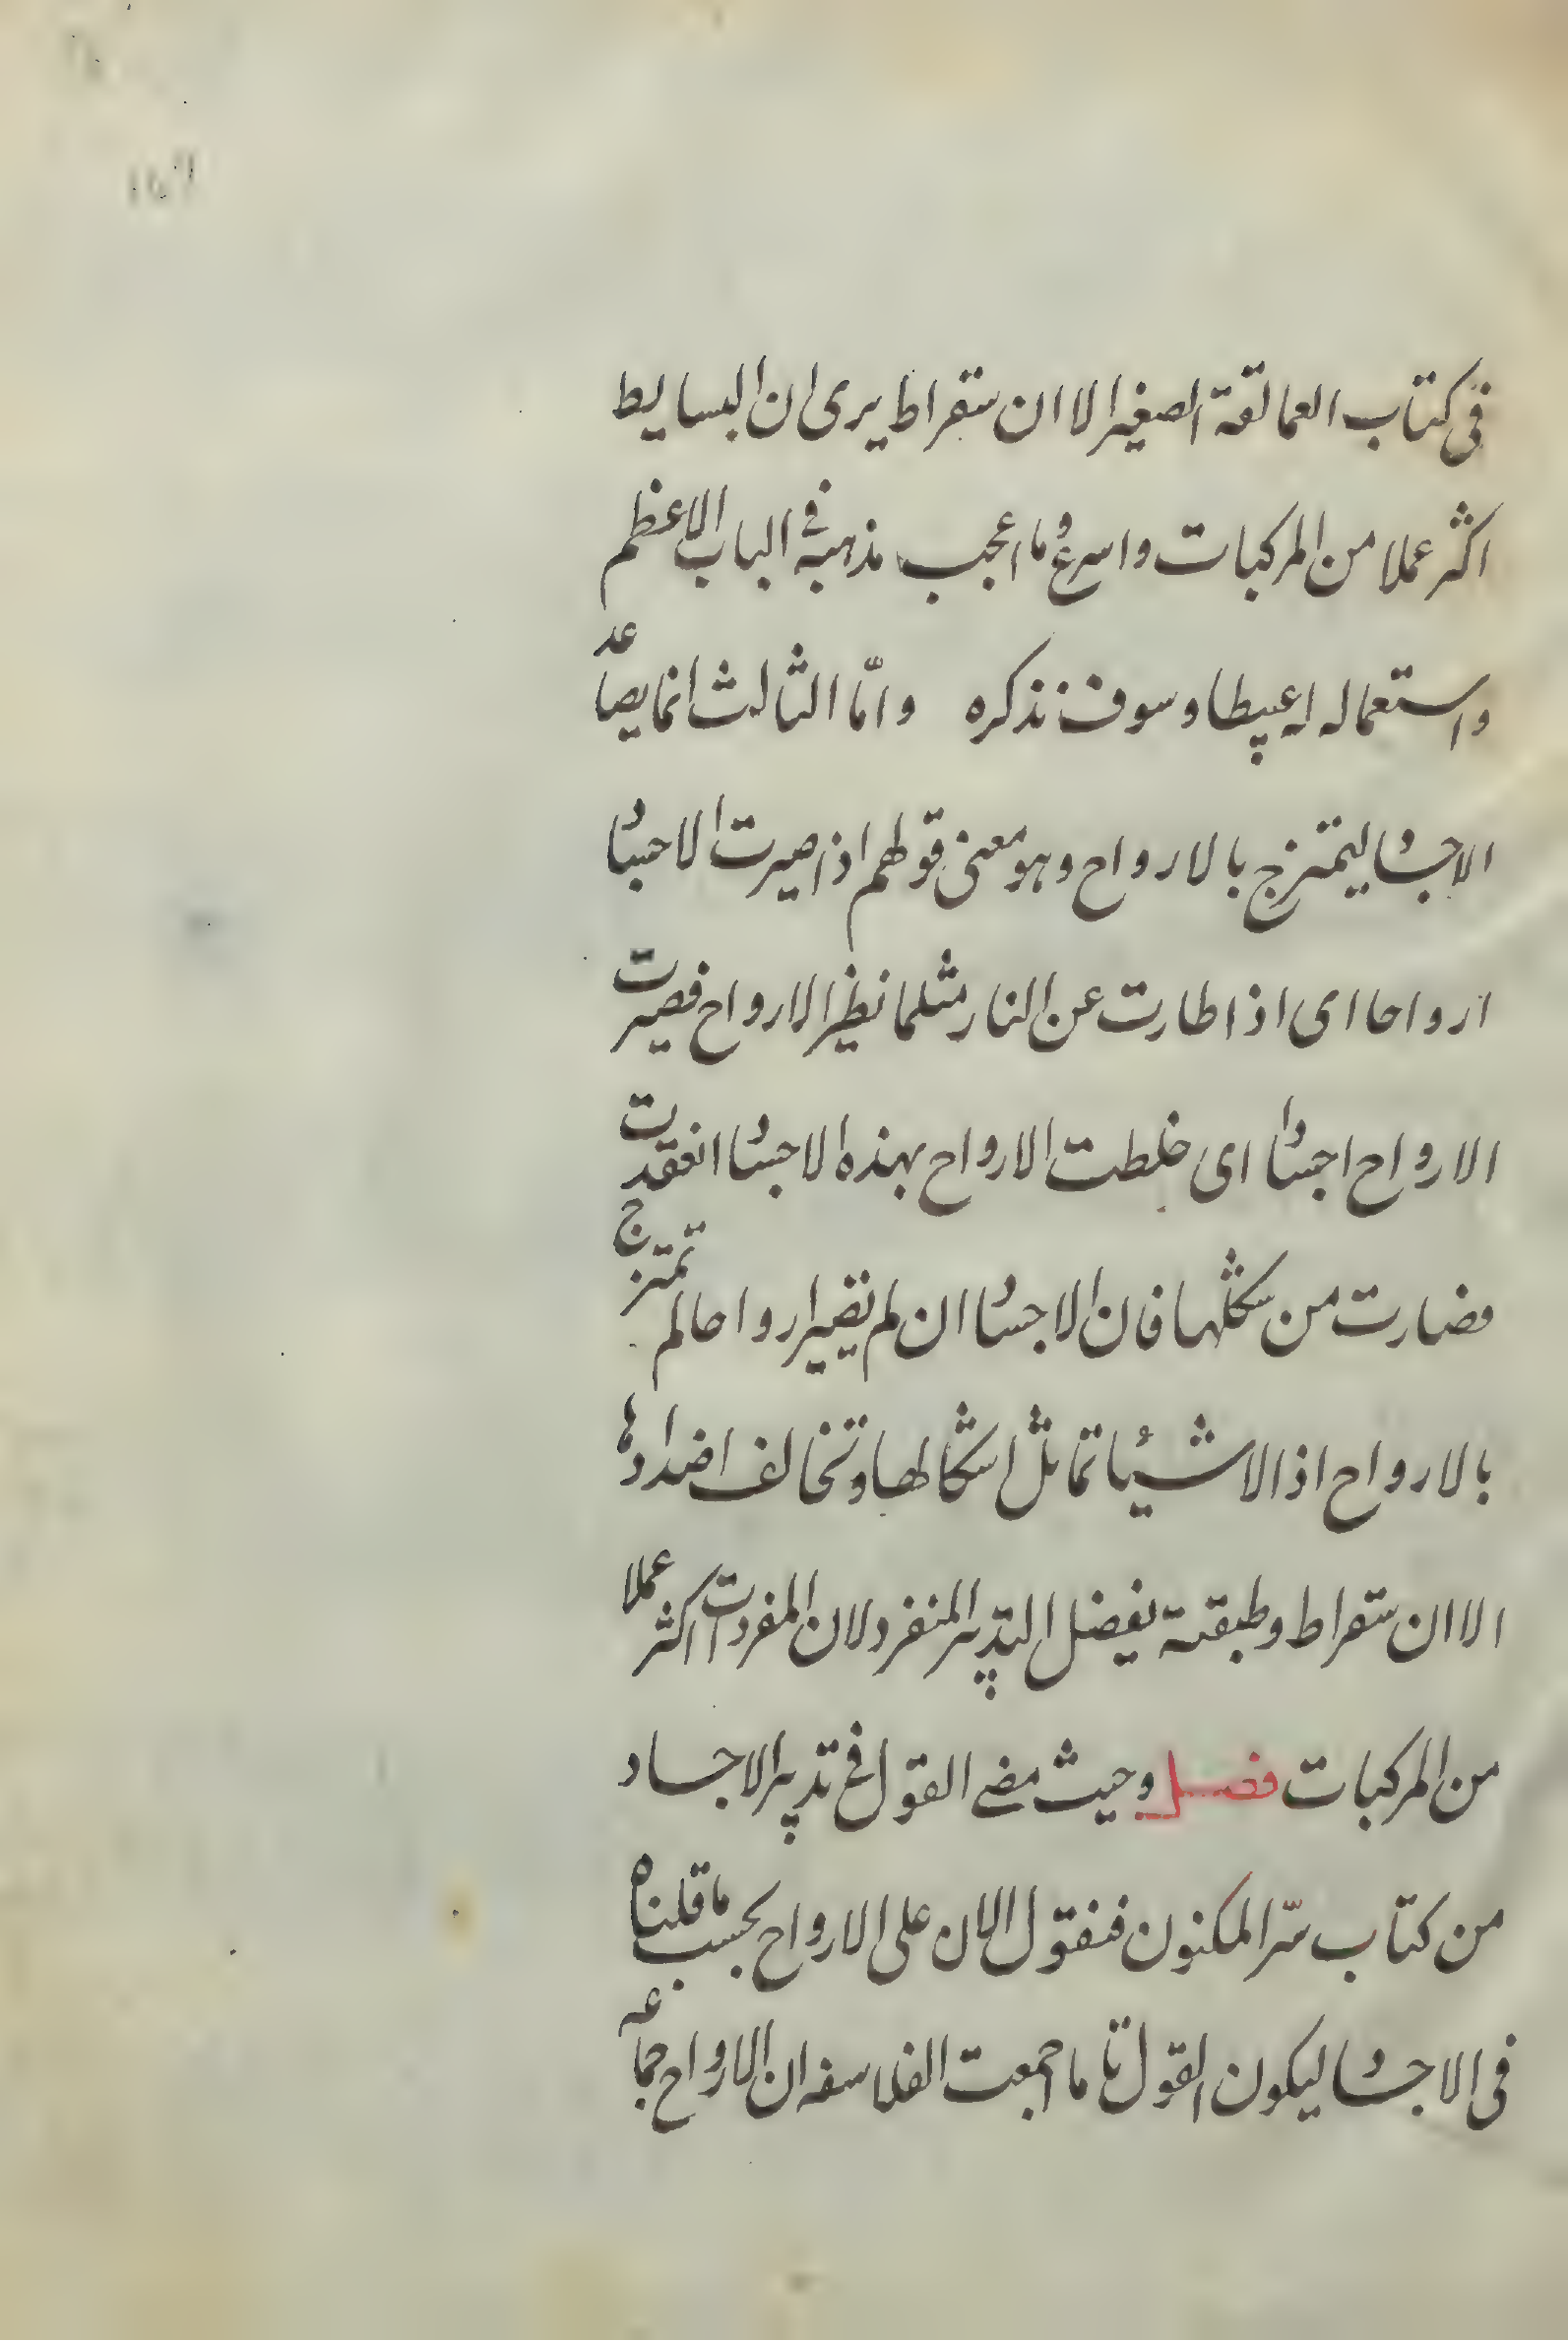 فى كتاب العمالقة الصغير الا ان سقراط يرى ان البسايط
اكثر عملا من المركبات واسرع وما اعجب مذهبه فى الباب الاعظم
واستعماله له عبيطا وسوف نذكره وامّا الثالث انما يصاعد
الاجساد ليمتزج بالارواح وهو معنى قولهم اذا صيرت الاجساد
ارواحا اى اذا طارت عن النار مثلما نطير الارواح فصيرت
الارواح اجسادا اى خلطت الارواح بهذه الاجساد انعقدت
فصارت من شكلها فان الاجساد ان لم تصير ارواحا لم تمتزج
بالارواح اذ الاشيئا تماثل اشكالها وتخالف اضدادها
الا ان سقراط وطبقته يفضل التدبير المنفرد لان المفردات اكثر عملا
من المركبات فصل وحيث مضى القول فى تدبير الاجساد
من كتاب سرّ المكنون فنقول الان على الارواح بحسب ما قلناه
فى الاجساد ليكون القول تاما اجمعت الفلاسفه ان الارواح جماعه